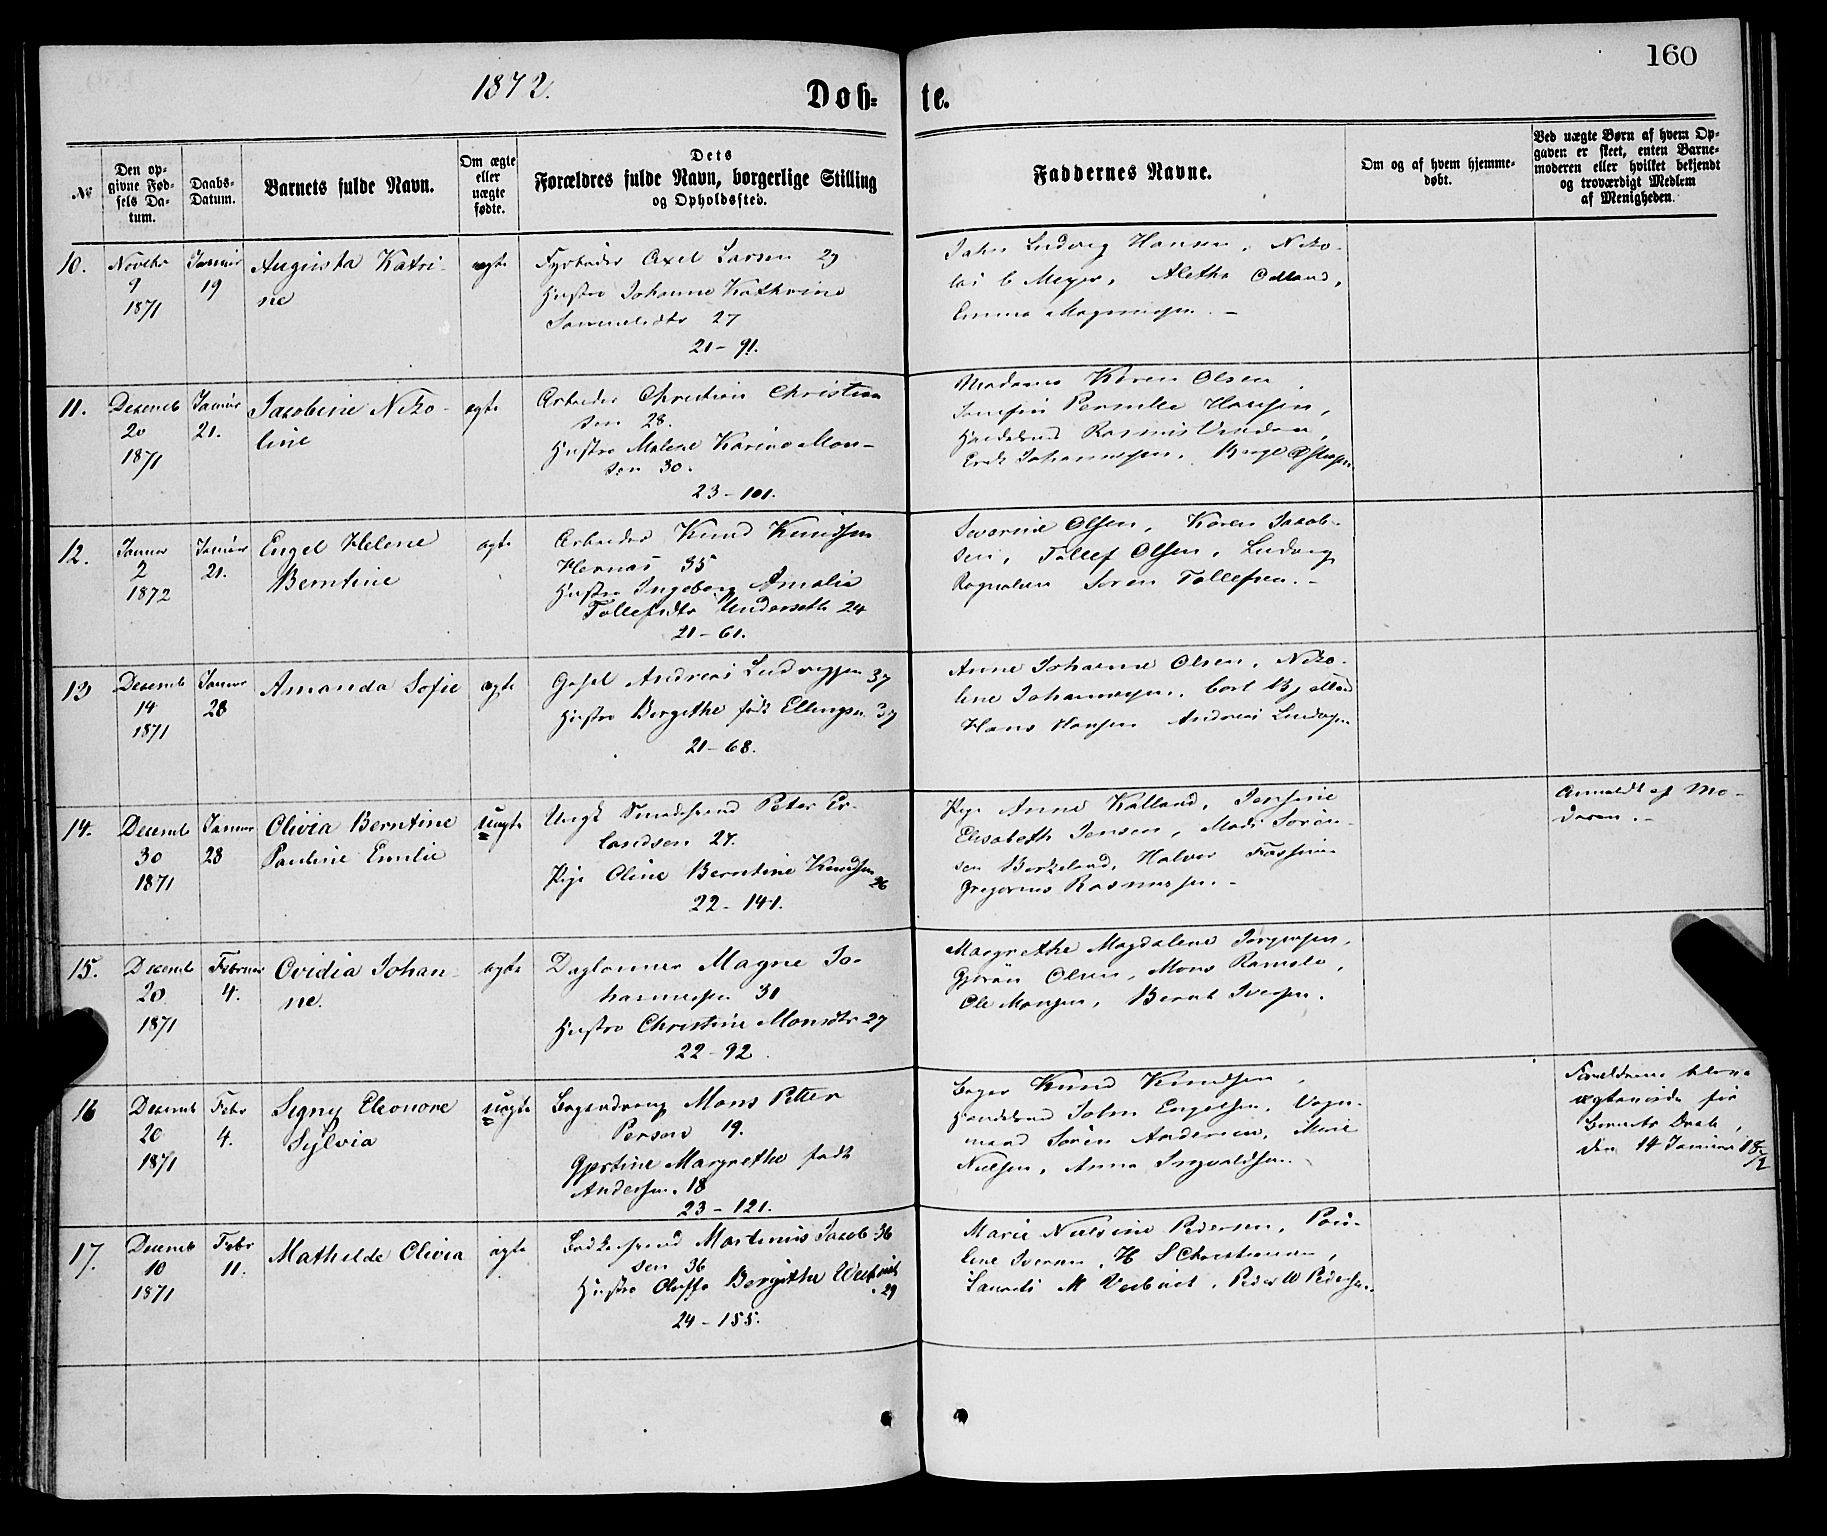 160
1872.
Døb-
te.
№
Den op-
givne Fød-
sels Da-
tum.
Daabs-
Datum.
Barnets fulde Navn.
Om ægte
eller
uægte
fødte.
Dets
Forældres fulde Navn, borgerlige Stilling
og Opholdssted.
Faddernes Navne.
Om og af hvem hjemme-
døbt.
Ved uægte Børn af hvem Op-
gaven er skeet, enten Barne-
moderen eller hvilket bekjendt
og troværdigt Medlem
af Menigheden.
10.
Novebr
9
1871
Januar
19
Augusta Katri-
ne
ægte
Fyrbøder Axel Larsen 29
Hustro Johanne Kathrine
27
21-91.
Ludvig Hansen, Niko-
lai C Meyer, Aletha Odland,
Emma Magnusen. -
11.
Decemb
20
1871
Januar
21.
Jacobine Niko-
line
ægte
Arbeider Christian Christian
sen 28.
Hustro Malene Karine Mon-
sen 30.
23-101.
Madame Karen Olsen,
Pernille Hansen,
Rasmus
Johannesen.
12.
Januar
2
1872
Januar
21.
Engel Helene
Berntine
ægte
Arbeider Knud Knudsen
Hernæs 35
Hustro Ingeborg Amalia
Tollefsdtr 24
21-61.
Severine Olsen, Karen Jacob-
sen, Tollef Olsen, Ludvig
Søren Tollefsen. -
13
Decemb
14
1871
Januar
28
Amanda Sofie
ægte
Andreas Ludvigsen 37
Hustro Bergithe født Ellingsen 37
21-68.
Anne Johanne Olsen, Niko-
line Johannesen.
Hans Hansen Andreas Ludvigsen
14.
Decemb
30
1871
Januar
28
Olivia Berntine
Pauline Emilie
uægte
Ungk Peter Er-
landsen 27.
Pige Oline Berntine Knudsen
26
22-141.
Pige Anne Kalland, Jensine
Elisabeth Jensen, Mads Søren-
sen Birkeland, Halvor
Gregorius Rasmussen. -
Anmeldt af Mo-
deren. -
15.
Decemb
20
1871
Februar
4.
Ovidia Johan-
ne.
ægte
Daglønner Magne Jo-
hannesen 31
Hustro Christine Monsdtr 27
22-92.
Margrethe Magdalene Jørgensen,
Olsen, Mons
Ole Monsen, Bernt Iversen.
16
Decemb
20
1871
Febr
4.
Signy Eleonore
Sylvia
uægte
Mons Petter
Persen 19.
Gjertine Margrethe født
Andersen. 18
23-121.
Bager Knud Knudsen,
John Engelsen, Vogn-
mand Søren Andersen, Marie
Nielsen, Anna Ingvaldsen
Forældrene bleve
ægteviede før
Barnets Daab,
den 14 Januar 18
72
17.
Decemb
10
1871
Febr
11.
Mathilde Olivia
ægte
Martinus Jacob 36
sen 36
Hustro Bergithe
29
24-155.
Marie Nielsine Pedersen, Pau-
line Iversen, H S Christensen,
Peder W Pedersen.